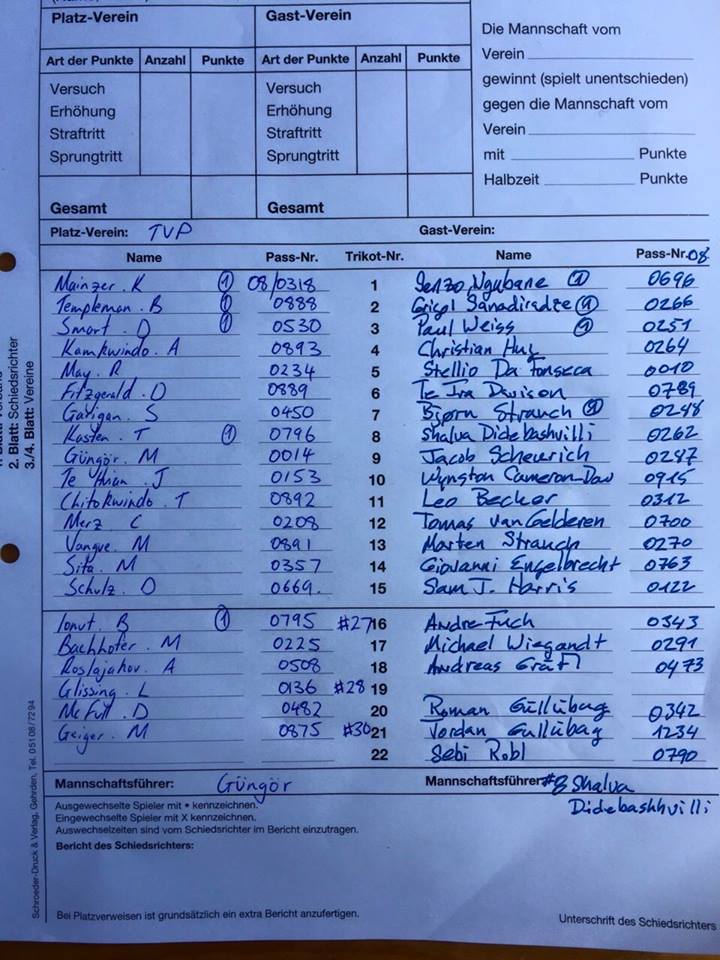 Platz-Verein Gast-Verein Die Mannschaft vom
Verein
Art der Punkte Anzahl Punkte Art der Punkte Anzahl Punkte gewinnt (spielt unentschieden)
Versuch Versuch gegen die Mannschaft vom
Erhöhung Erhöhung Verein
Straftritt Straftritt mit Punkte
Sprungtritt Sprungtritt Halbzeit Punkte
Gesamt Gesamt
Platz-Verein: TVP Gast-Verein:
Name Pass-Nr. Trikot-Nr. Name Pass-Nr. 08
Mainzer. K ① 08/0318 1 Senzo Ngubane ① 0696
Templeman. B ① 0888 2 Grigol Sanadiradze ① 0266
Smart. D ① 0530 3 Paul Weiss ① 0251
Kamkwindo. A 0893 4 Christian Hug 0264
May. R 0234 5 Stellio Da Fonseca 0010
Fitzgerald. D 0889 6 Te Ira Davison 0789
Galigan. S 0450 7 Bjørn Strauch ① 0248
Kasten. T ① 0796 8 Shalva Didebashvilli 0262
Güngör. M 0014 9 Jacob Scheurich 0287
Te J 0153 10 Wynston Cameron-Dow 0915
Chitokwindo. T 0892 11 Leo Becker 0312
Merz C 0208 12 Tomas van Gelderen 0700
Vangue. M 0891 13 Marten Strauch 0270
Sita. M 0357 14 Giovanni Engelbrecht 0763
Schulz. D 0669. 15 Sam J. Harris 0122
Ionut. B ① 0795 #27 16 Andre Fuch 0343
Bachhofer. M 0225 17 Michael Wiegandt 0291
Roslajakov. A 0508 18 Andreas Gräfl 0473
Glissing. L 0136 #28 19
Mc Full. D 0482 20 Roman Güllübag 0342
Geiger. M 0875 #30 21 Jordan Gullübag 1234
22 Sebi Robl 0790
Mannschaftsführer: Güngör Mannschaftsführer #8 Shalva
Didebashhvilli
Ausgewechselte Spieler mit • kennzeichnen.
Eingewechselte Spieler mit X kennzeichnen.
Auswechselzeiten sind vom Schiedsrichter im Bericht einzutragen.
Bericht des Schiedsrichters:
Bei Platzverweisen ist grundsätzlich ein extra Bericht anzufertigen.
Unterschrift des Schiedsrichters
2. Blatt: Schiedsrichter
3./4. Blatt: Vereine
Schroeder-Druck & Verlag, Gehrden, Tel. 05108/7294